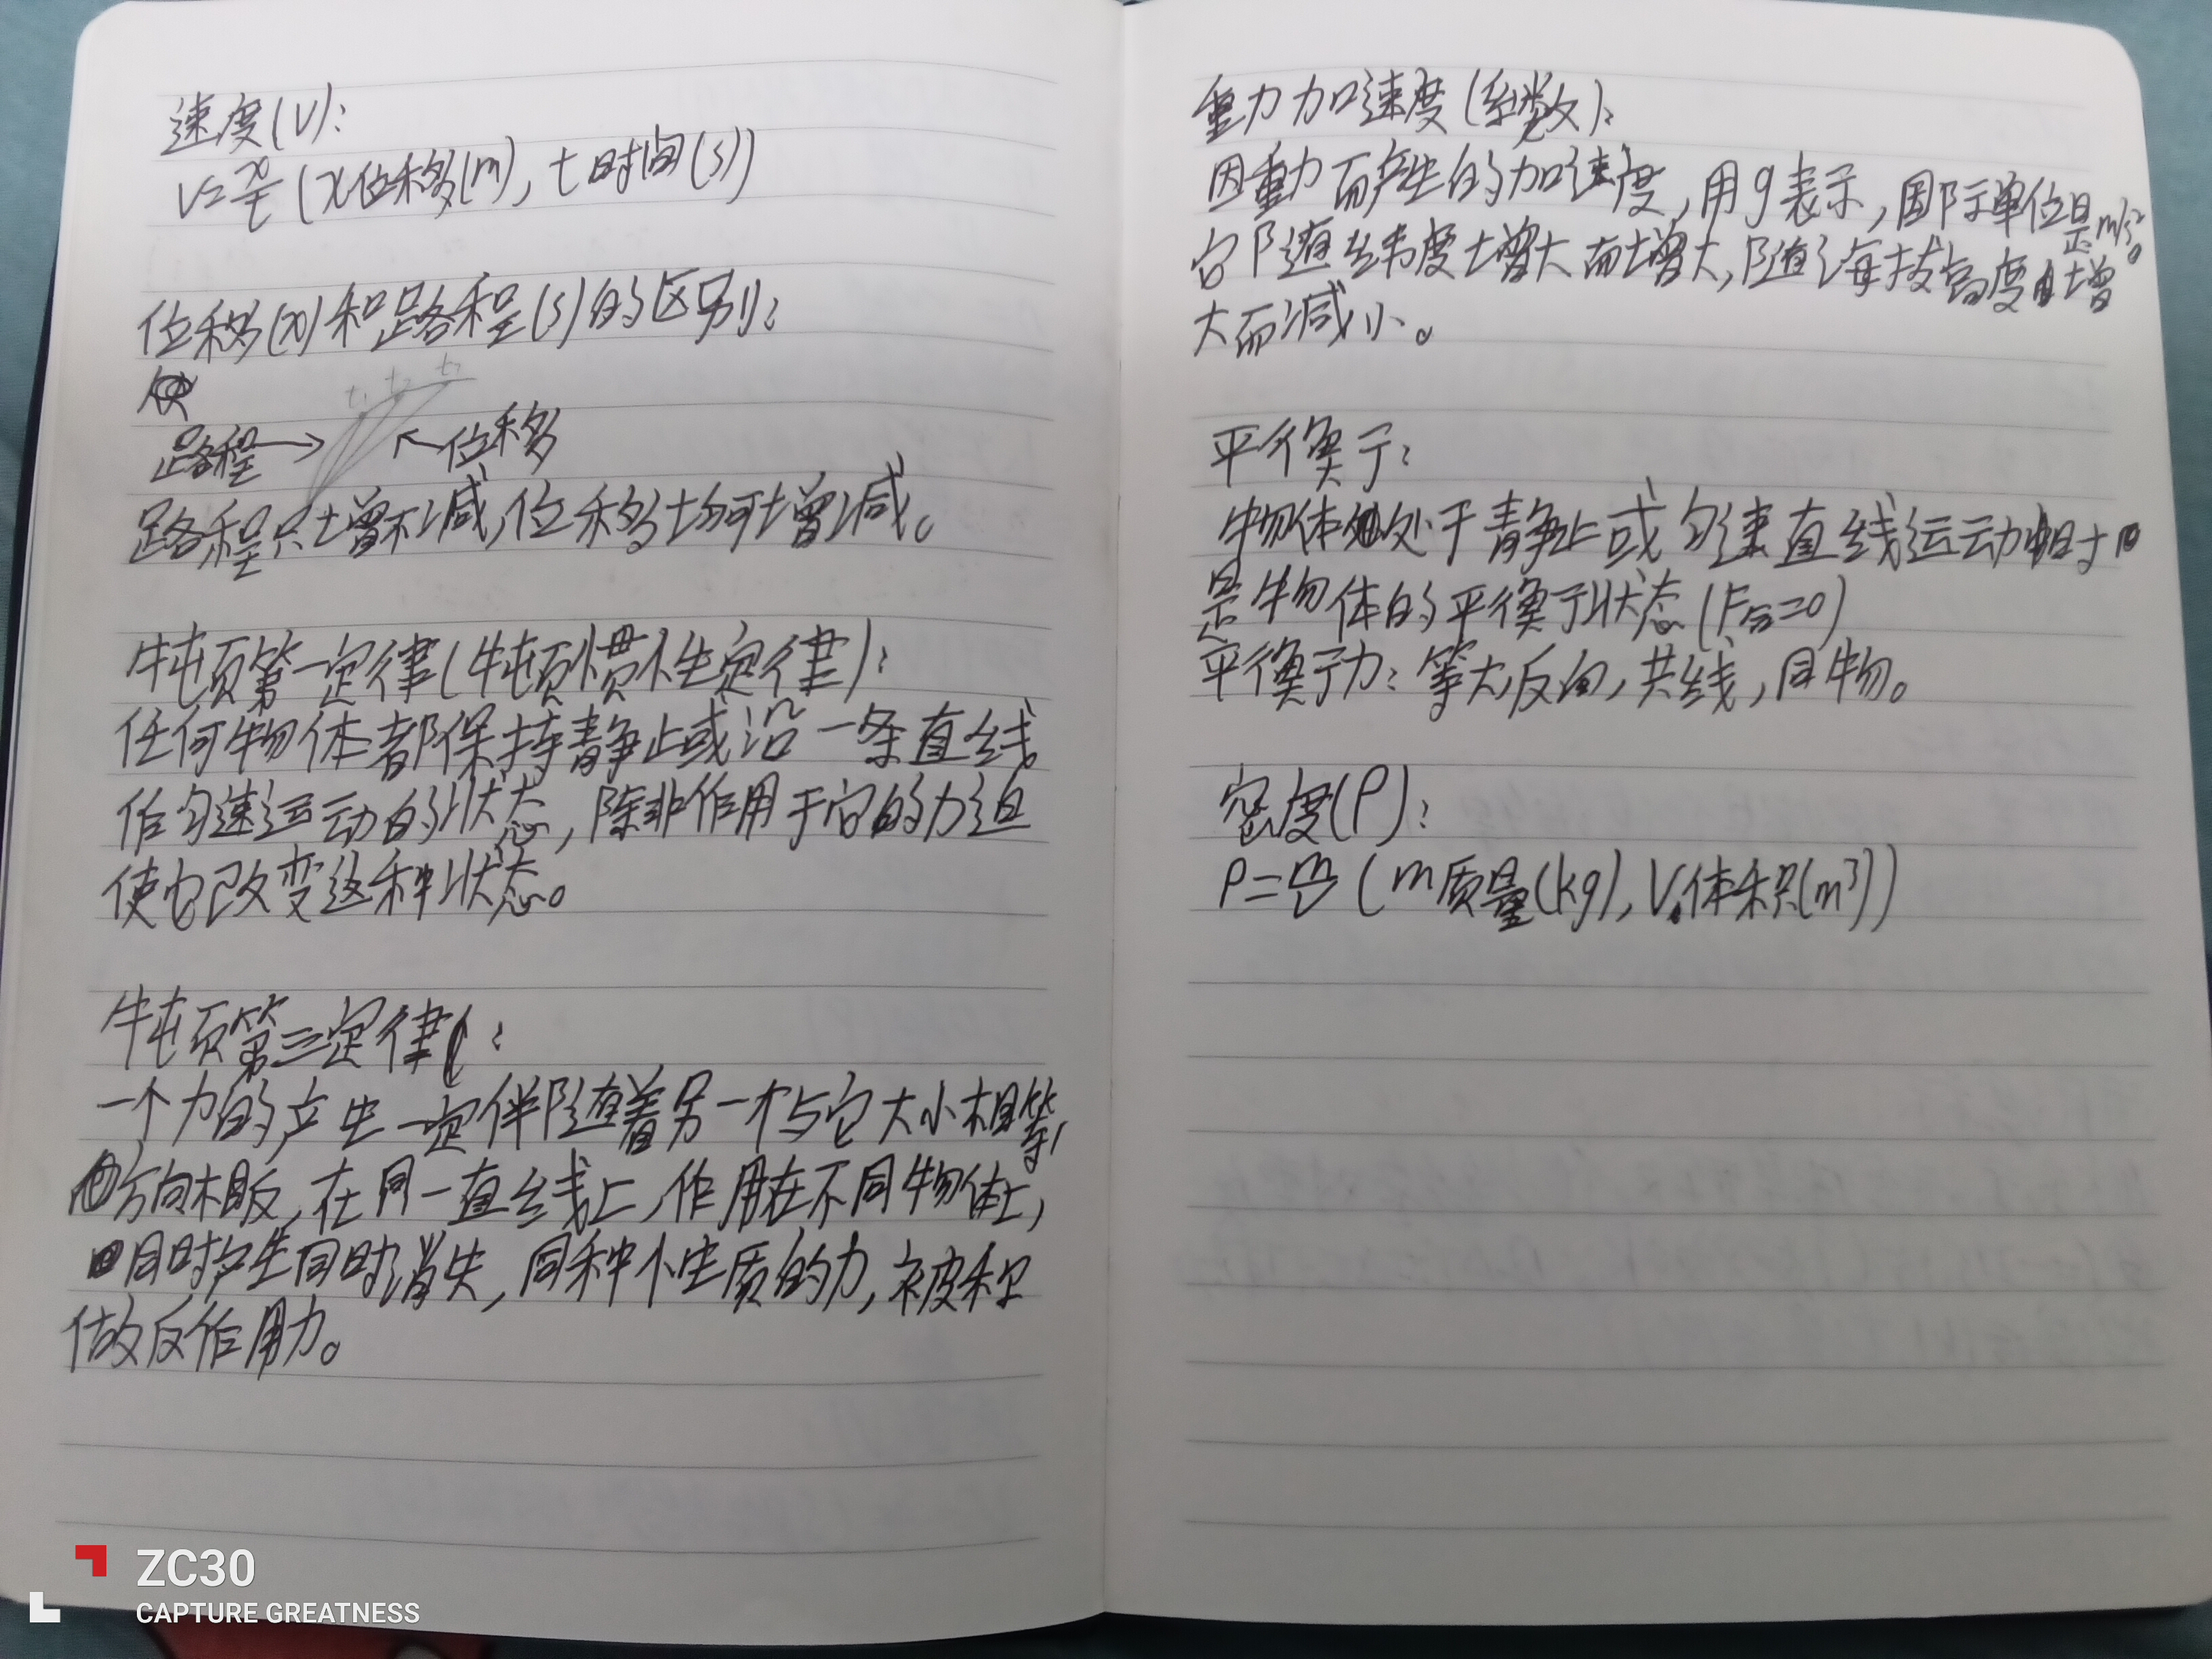 速度(V):
V=x/t (x位移(m), t时间(s))
位移(x)和路程(s)的区别:
t₁ t₂ t₃
路程→ ←位移
路程只增不减,位移均可增减。
牛顿第一定律(牛顿惯性定律):
任何物体都保持静止或沿一条直线
作匀速运动的状态,除非作用于它的力迫
使它改变这种状态。
牛顿第三定律:
一个力的产生一定伴随着另一个与它大小相等,
方向相反,在同一直线上,作用在不同物体上,
同时产生同时消失,同种性质的力,被称
做反作用力。
重力加速度(系数):
因重力而产生的加速度,用g表示,国际单位是m/s²。
它随纬度增大而增大,随海拔高度增
大而减小。
平衡:
物体处于静止或匀速直线运动时
是物体的平衡状态(F合=0)
平衡力:等大,反向,共线,同物。
密度(ρ):
ρ=m/V (m质量(kg),V体积(m³))
ZC30
CAPTURE GREATNESS